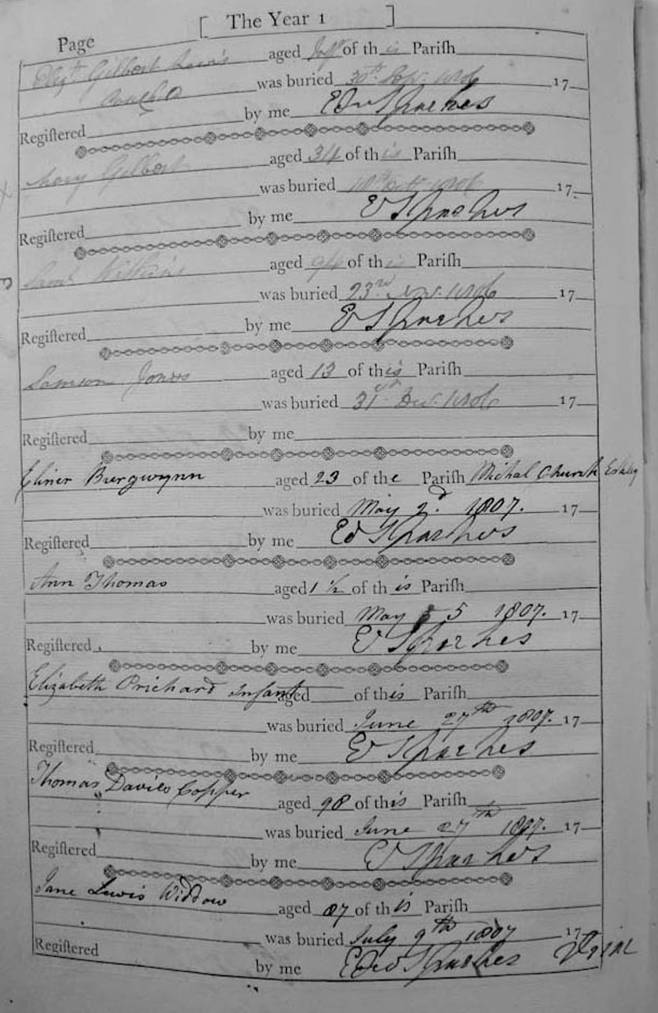 Page [ The Year 1 ]
Gilbert aged of this Parish
was buried 30th 17
Registered by me Edw Sparkes
Mary Gilbert aged 34 of this Parish
was buried 1806 17
Registered by me E Sparkes
Williams aged 94 of this Parish
was buried 23rd Nov. 1806 17
Registered by me E Sparkes
Samson Jones aged 13 of this Parish
was buried 31st Dec. 1806 17
Registered by me
Eliner Burgwynn aged 23 of the Parish Michal Church Eskley
was buried May 2d 1807. 17
Registered by me Ed Sparkes
Ann Thomas aged 1 1/2 of this Parish
was buried May 5 1807. 17
Registered by me E Sparkes
Elizabeth Prichard Infant aged of this Parish
was buried June 27th 1807. 17
Registered by me E Sparkes
Thomas Davies Copper aged 98 of this Parish
was buried June 27th 1807. 17
Registered by me E Sparkes
Jane Lewis Widdow aged 87 of this Parish
was buried July 9th 1807 17
Registered by me Edw Sparkes